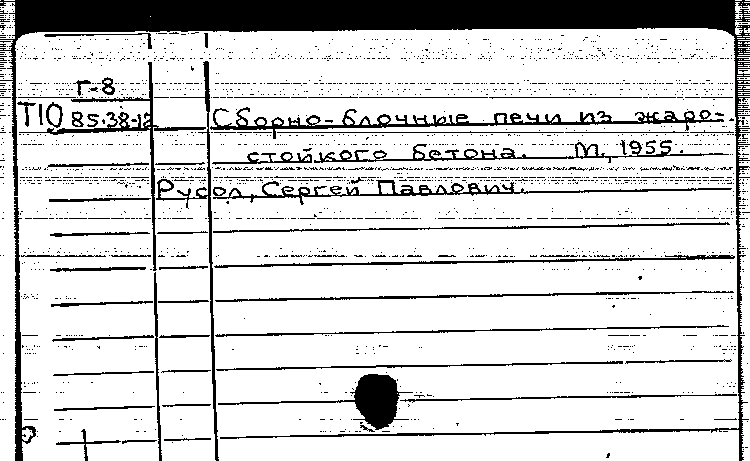 Г-8
Т10 85-38-12 Сборно-блочные печи из жаро-
стойкого бетона. М., 1955.
Русол, Сергей Павлович.